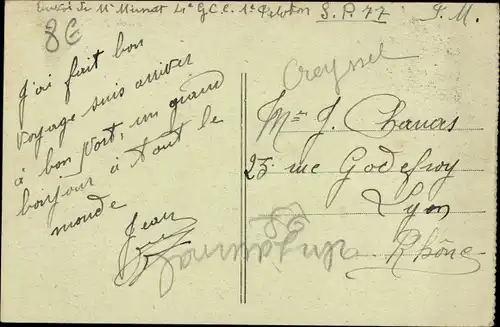 Envoi de Mr Munat 4e G.C.C. 1e Peloton S.P. 77 P.M.
8€
J'ai fait bon
voyage suis arriver
à bon port, un grand
bonjour à tout le
monde
Jean
Creyssel
Mr J. Chanas
23 rue Godefroy
Lyon
Rhône